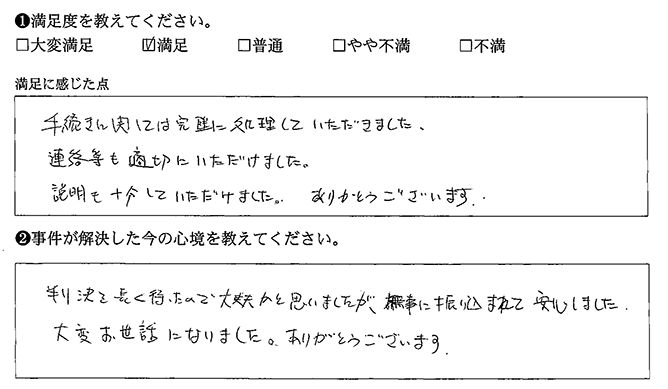 ❶満足度を教えてください。
□大変満足 ☑満足 □普通 □やや不満 □不満
満足に感じた点
手続きに関しては完璧に処理していただきました。
連絡等も適切にいただけました。
説明も十分していただけました。ありがとうございます。
❷事件が解決した今の心境を教えてください。
判決を長く待ったので大丈夫かと思いましたが、無事に振り込まれて安心しました。
大変お世話になりました。ありがとうございます。